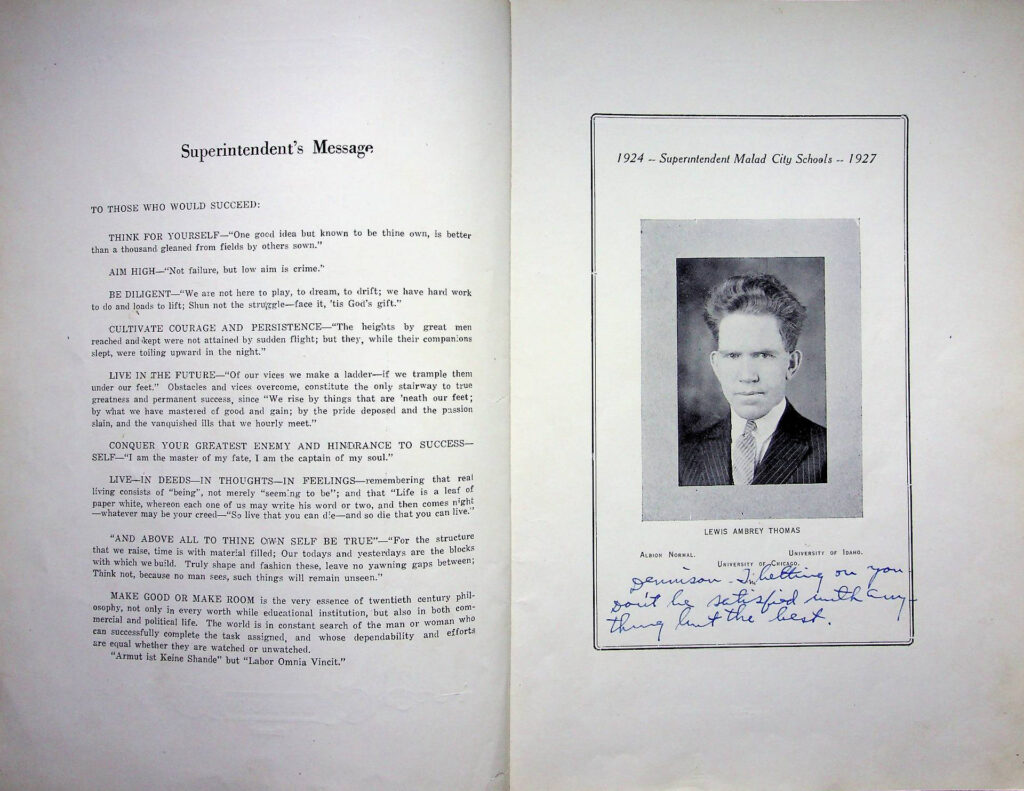 Superintendent's Message
TO THOSE WHO WOULD SUCCEED:
THINK FOR YOURSELF—"One good idea but known to be thine own, is better
than a thousand gleaned from fields by others sown."
AIM HIGH—"Not failure, but low aim is crime."
BE DILIGENT—"We are not here to play, to dream, to drift; we have hard work
to do and loads to lift; Shun not the struggle—face it, 'tis God's gift."
CULTIVATE COURAGE AND PERSISTENCE—"The heights by great men
reached and kept were not attained by sudden flight; but they, while their companions
slept, were toiling upward in the night."
LIVE IN THE FUTURE—"Of our vices we make a ladder—if we trample them
under our feet." Obstacles and vices overcome, constitute the only stairway to true
greatness and permanent success, since "We rise by things that are 'neath our feet;
by what we have mastered of good and gain; by the pride deposed and the passion
slain, and the vanquished ills that we hourly meet."
CONQUER YOUR GREATEST ENEMY AND HINDRANCE TO SUCCESS—
SELF—"I am the master of my fate, I am the captain of my soul."
LIVE—IN DEEDS—IN THOUGHTS—IN FEELINGS—remembering that real
living consists of "being", not merely "seeming to be"; and that "Life is a leaf of
paper white, whereon each one of us may write his word or two, and then comes night
—whatever may be your creed—"So live that you can die—and so die that you can live."
"AND ABOVE ALL TO THINE OWN SELF BE TRUE"—"For the structure
that we raise, time is with material filled; Our todays and yesterdays are the blocks
with which we build. Truly shape and fashion these, leave no yawning gaps between;
Think not, because no man sees, such things will remain unseen."
MAKE GOOD OR MAKE ROOM is the very essence of twentieth century phil-
osophy, not only in every worth while educational institution, but also in both com-
mercial and political life. The world is in constant search of the man or woman who
can successfully complete the task assigned, and whose dependability and efforts
are equal whether they are watched or unwatched.
"Armut ist Keine Shande" but "Labor Omnia Vincit."
1924 -- Superintendent Malad City Schools -- 1927
LEWIS AMBREY THOMAS
ALBION NORMAL. UNIVERSITY OF IDAHO.
UNIVERSITY OF CHICAGO.
Dennison - I'm betting on you
Don't be satisfied with any-
thing but the best.